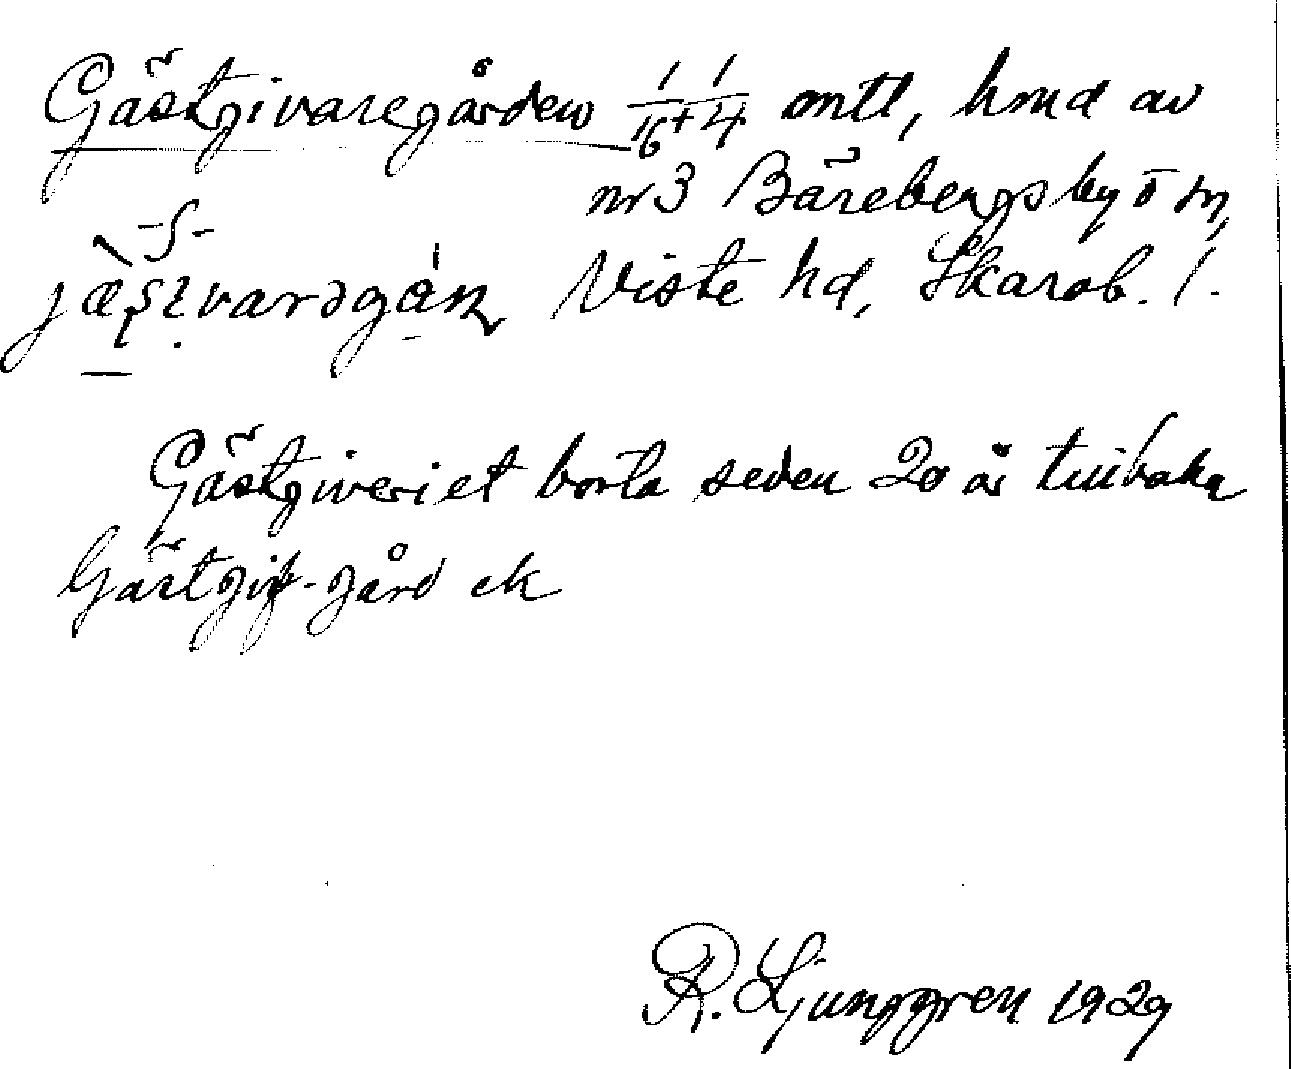 Gästgivaregården 1/16 + 1/4 mtl, hmd av
nr 3 Bärebergs by o sn,
Viste hd, Skarab. l.
Gästgiveriet borta sedan 20 år tillbaka
Gästgif-gård ek
R. Ljunggren 1929